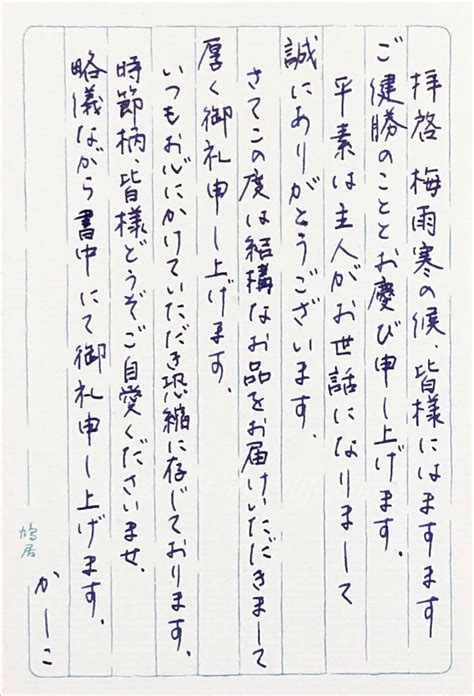 拝啓 梅雨寒の候、皆様にはますます
ご健勝のこととお慶び申し上げます。
平素は主人がお世話になりまして
誠にありがとうございます。
さてこの度は結構なお品をお届けいただきまして
厚く御礼申し上げます。
いつもお心にかけていただき恐縮に存じております。
時節柄、皆様どうぞご自愛くださいませ。
略儀ながら書中にて御礼申し上げます。
かしこ
鳩居